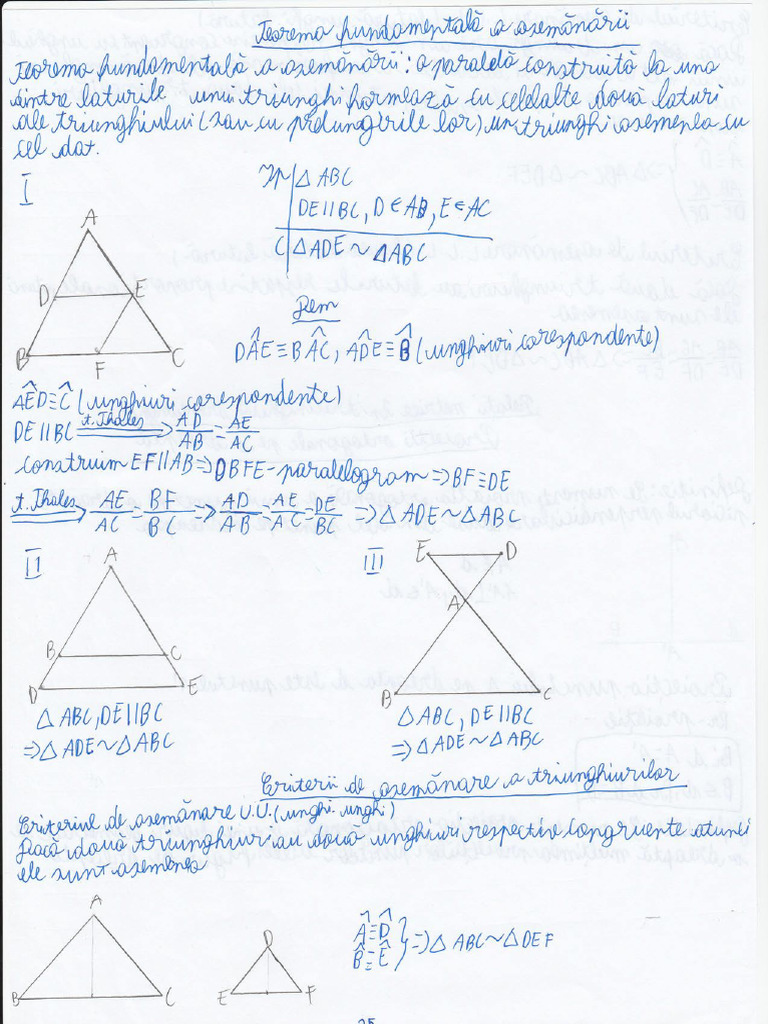 Teorema fundamentală a asemănării
Teorema fundamentală a asemănării: o paralelă construită la una
dintre laturile unui triunghi formează cu celelalte două laturi
ale triunghiului (sau cu prelungirile lor) un triunghi asemenea cu
cel dat.
I
Ip ΔABC
DE||BC, D∈AB, E∈AC
C ΔADE~ΔABC
A
D E
B F C
Dem
DÂE≡BÂC, AD̂E≡B̂ (unghiuri corespondente)
AÊD≡Ĉ (unghiuri corespondente)
DE||BC t. Thales ⇒ AD/AB=AE/AC
construim EF||AB⇒DBFE-paralelogram⇒BF≡DE
t. Thales ⇒ AE/AC=BF/BC⇒AD/AB=AE/AC=DE/BC ⇒ΔADE~ΔABC
II
A
B C
D E
ΔABC, DE||BC
⇒ΔADE~ΔABC
III
E D
A
B C
ΔABC, DE||BC
⇒ΔADE~ΔABC
Criterii de asemănare a triunghiurilor
Criteriul de asemănare U.U. (unghi.unghi)
Dacă două triunghiuri au două unghiuri respective congruente atunci
ele sunt asemenea
A
B C
D
E F
Â≡D̂
B̂≡Ê } ⇒ΔABC~ΔDEF